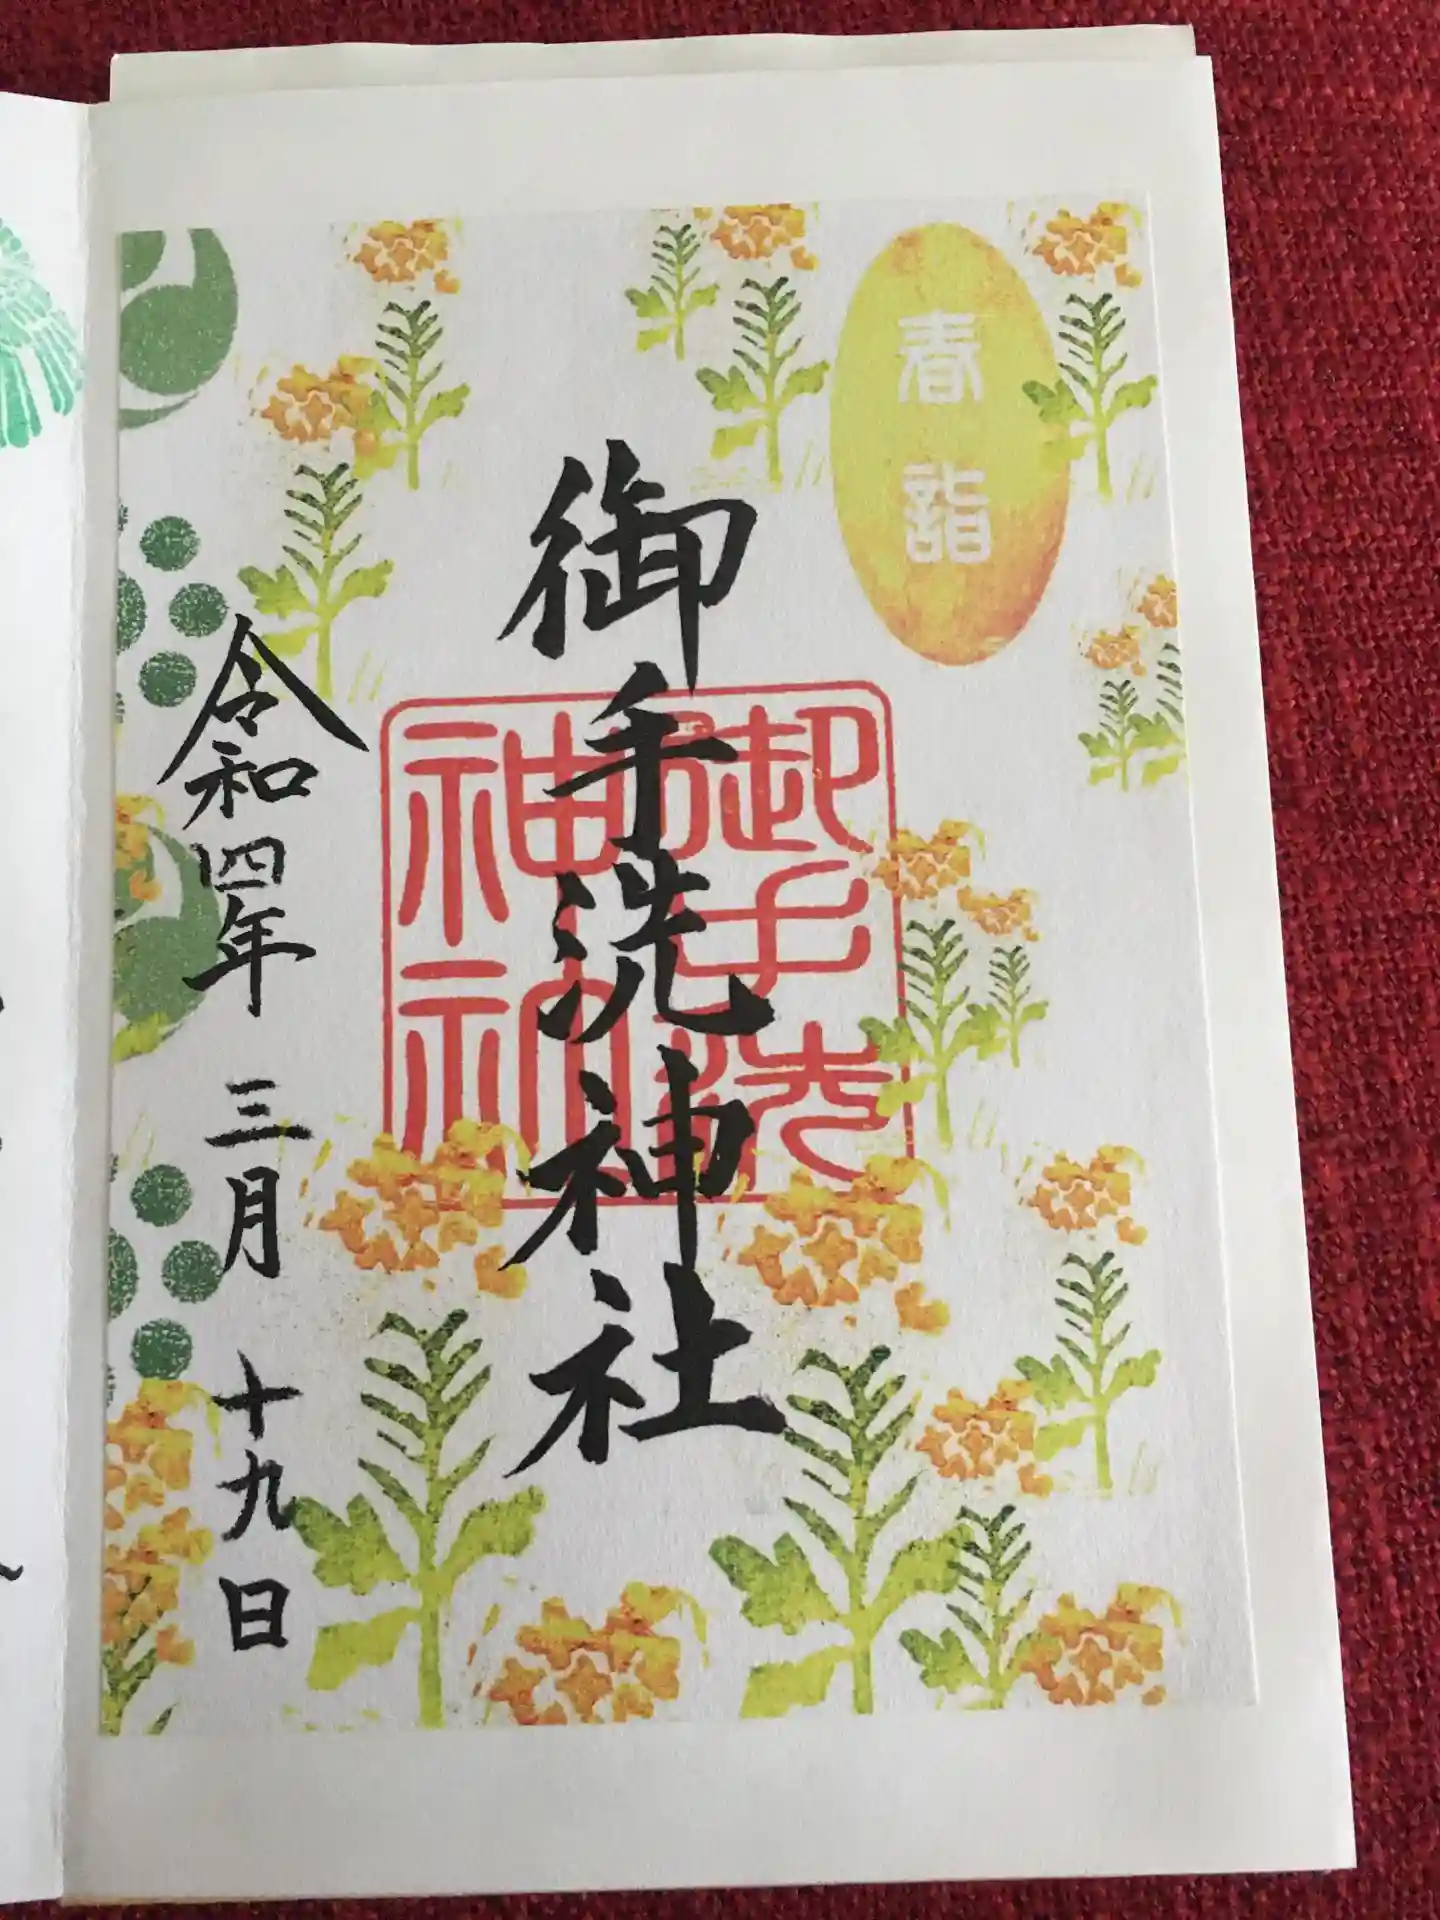 春詣
御手洗神社
御手洗
神社
令和四年 三月 十九日